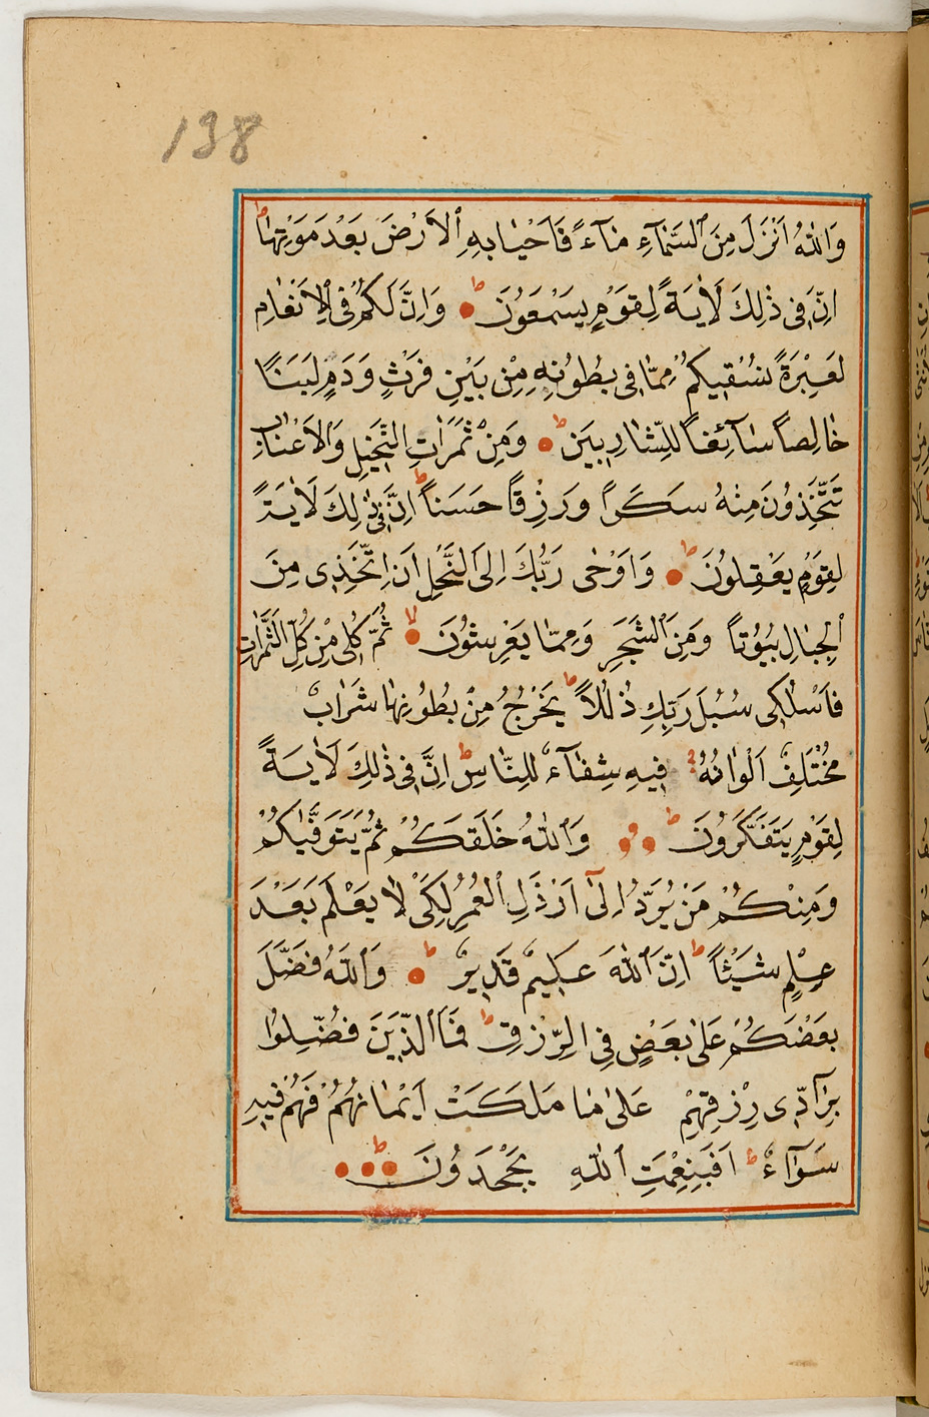 138
وَاللّٰهُ اَنْزَلَ مِنَ السَّمَآءِ مَآءً فَاَحْيَا بِهِ الْاَرْضَ بَعْدَ مَوْتِهَا ط
اِنَّ فِى ذٰلِكَ لَاٰيَةً لِقَوْمٍ يَسْمَعُونَ ط وَاِنَّ لَكُمْ فِى الْاَنْعَامِ
لَعِبْرَةً نُسْقِيكُمْ مِمَّا فِى بُطُونِهِ مِنْ بَيْنِ فَرْثٍ وَدَمٍ لَبَنًا
خَالِصاً سَآئِغاً لِلشَّارِبِينَ ط وَمِنْ ثَمَرَاتِ النَّخِيلِ وَالْاَعْنَابِ
تَتَّخِذُونَ مِنْهُ سَكَراً وَرِزْقاً حَسَناً ط اِنَّ فِى ذٰلِكَ لَاٰيَةً
لِقَوْمٍ يَعْقِلُونَ ط وَاَوْحٰى رَبُّكَ اِلَى النَّحْلِ اَنِ اتَّخِذِى مِنَ
الْجِبَالِ بُيُوتاً وَمِنَ الشَّجَرِ وَمِمَّا يَعْرِشُونَ لا ثُمَّ كُلِى مِنْ كُلِّ الثَّمَرَاتِ
فَاسْلُكِى سُبُلَ رَبِّكِ ذُلُلاً ط يَخْرُجُ مِنْ بُطُونِهَا شَرَابٌ
مُخْتَلِفٌ اَلْوَانُهُ فِيهِ شِفَآءٌ لِلنَّاسِ ط اِنَّ فِى ذٰلِكَ لَاٰيَةً
لِقَوْمٍ يَتَفَكَّرُونَ ط وَاللّٰهُ خَلَقَكُمْ ثُمَّ يَتَوَفّٰيكُمْ
وَمِنْكُمْ مَنْ يُرَدُّ اِلٰٓى اَرْذَلِ الْعُمُرِ لِكَىْ لَا يَعْلَمَ بَعْدَ
عِلْمٍ شَيْئاً ط اِنَّ اللّٰهَ عَلِيمٌ قَدِيرٌ ط وَاللّٰهُ فَضَّلَ
بَعْضَكُمْ عَلٰى بَعْضٍ فِى الرِّزْقِ ط فَمَا الَّذِينَ فُضِّلُوا
بِرَآدِّى رِزْقِهِمْ عَلٰى مَا مَلَكَتْ اَيْمَانُهُمْ فَهُمْ فِيهِ
سَوَآءٌ ط اَفَبِنِعْمَتِ اللّٰهِ يَجْحَدُونَ ط